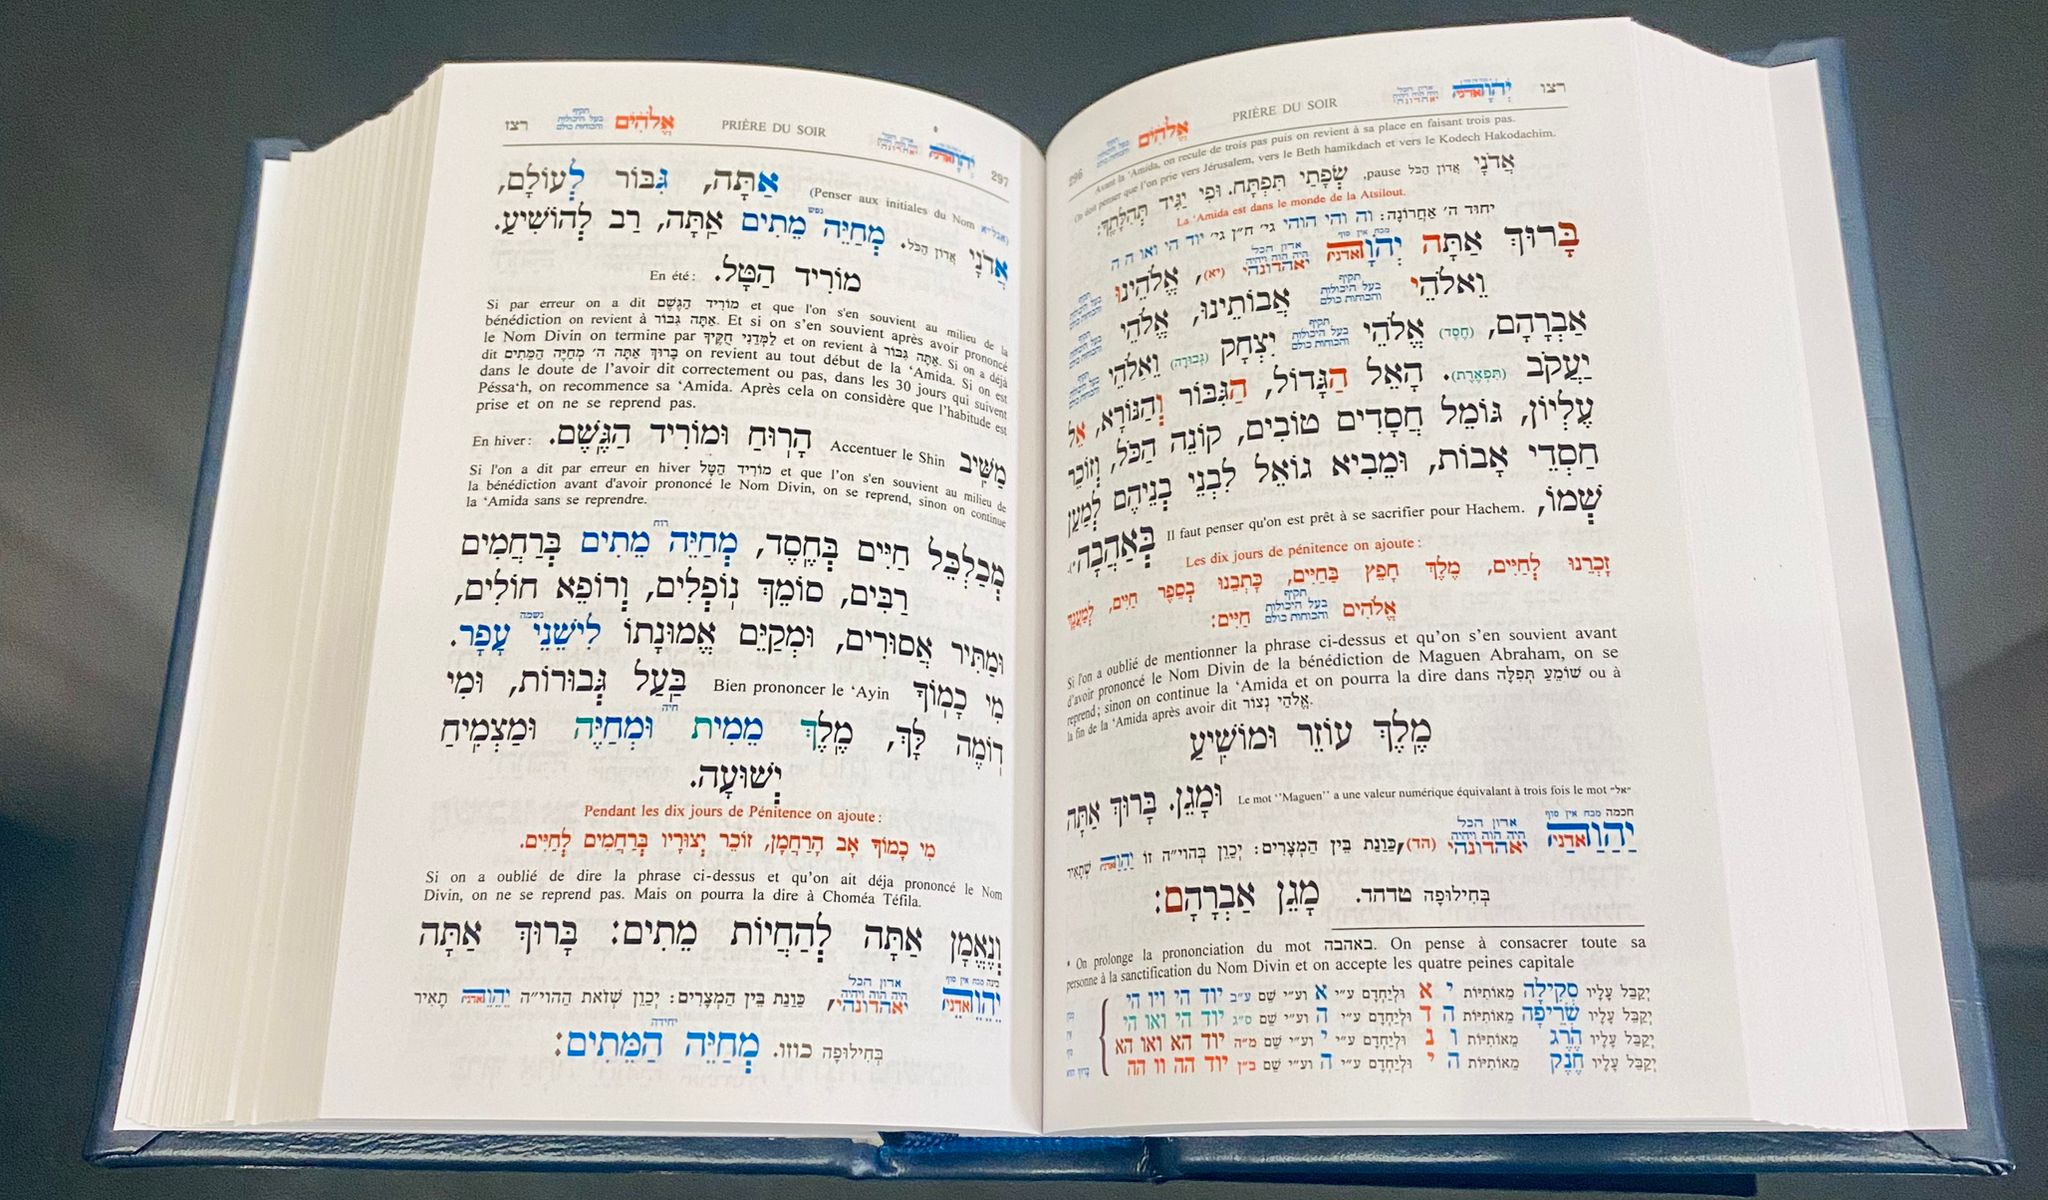 רצו יְהֹוָה PRIÈRE DU SOIR אֱלֹהִים 296
Avant la ‘Amida, on recule de trois pas puis on revient à sa place en faisant trois pas.
On doit penser que l'on prie vers Jérusalem, vers le Beth hamikdach et vers le Kodech Hakodachim.
אֲדֹנָי אדון הכל pause, שְׂפָתַי תִּפְתָּח. וּפִי יַגִּיד תְּהִלָּתֶךָ:
La ‘Amida est dans le monde de la Atsilout.
בָּרוּךְ אַתָּה יְהֹוָה יאהדונהי (יא), אֱלֹהֵינוּ
וֵאלֹהֵי אֲבוֹתֵינוּ, אֱלֹהֵי
אַבְרָהָם, (חֶסֶד) אֱלֹהֵי יִצְחָק (גְּבוּרָה) וֵאלֹהֵי
יַעֲקֹב (תִּפְאֶרֶת). הָאֵל הַגָּדוֹל, הַגִּבּוֹר וְהַנּוֹרָא, אֵל
עֶלְיוֹן, גּוֹמֵל חֲסָדִים טוֹבִים, קוֹנֵה הַכֹּל, וְזוֹכֵר
חַסְדֵי אָבוֹת, וּמֵבִיא גוֹאֵל לִבְנֵי בְנֵיהֶם לְמַעַן
שְׁמוֹ, Il faut penser qu'on est prêt à se sacrifier pour Hachem. בְּאַהֲבָה*.
Les dix jours de pénitence on ajoute :
זָכְרֵנוּ לְחַיִּים, מֶלֶךְ חָפֵץ בַּחַיִּים, כָּתְבֵנוּ בְּסֵפֶר חַיִּים, לְמַעֲנָךְ
אֱלֹהִים תקיף בעל היכולות והכוחות כולם חַיִּים:
Si l'on a oublié de mentionner la phrase ci-dessus et qu'on s'en souvient avant
d'avoir prononcé le Nom Divin de la bénédiction de Maguen Abraham, on se
reprend ; sinon on continue la ‘Amida et on pourra la dire dans שׁוֹמֵעַ תְּפִלָּה ou à
la fin de la ‘Amida après avoir dit אֱלֹהַי נְצוֹר.
מֶלֶךְ עוֹזֵר וּמוֹשִׁיעַ
וּמָגֵן. בָּרוּךְ אַתָּה Le mot ‘‘Maguen’’ a une valeur numérique équivalant à trois fois le mot "אל"
יַהַוַהַ יאהדונהי (הד), כַּוָּנַת בֵּין הַמְּצָרִים: יְכַוֵּן בְּהוי"ה זוֹ שֶׁתָּאִיר
בְּחִילוּפָהּ טדהד. מָגֵן אַבְרָהָם:
* On prolonge la prononciation du mot באהבה. On pense à consacrer toute sa
personne à la sanctification du Nom Divin et on accepte les quatre peines capitale
יְקַבֵּל עָלָיו סְקִילָה מֵאוֹתִיּוֹת י א וּלְיַחֲדָם ע"י א וע"י שֵׁם ע"ב יוד הי ויו הי
יְקַבֵּל עָלָיו שְׂרֵיפָה מֵאוֹתִיּוֹת ה ד וּלְיַחֲדָם ע"י ה וע"י שֵׁם ס"ג יוד הי ואו הי
יְקַבֵּל עָלָיו הֶרֶג מֵאוֹתִיּוֹת ו נ וּלְיַחֲדָם ע"י י וע"י שֵׁם מ"ה יוד הא ואו הא
יְקַבֵּל עָלָיו חֶנֶק מֵאוֹתִיּוֹת ה י וּלְיַחֲדָם ע"י ה וע"י שֵׁם ב"ן יוד הה וו הה
297 יְהֹוָה PRIÈRE DU SOIR אֱלֹהִים תקיף בעל היכולות והכוחות כולם רצז
(Penser aux initiales du Nom אגל"א) אַתָּה, גִּבּוֹר לְעוֹלָם,
אֲדֹנָי אדון הכל. מְחַיֵּה מֵתִים אַתָּה, רַב לְהוֹשִׁיעַ.
En été : מוֹרִיד הַטָּל.
Si par erreur on a dit מוֹרִיד הַגֶּשֶׁם et que l'on s'en souvient au milieu de la
bénédiction on revient à אַתָּה גִּבּוֹר. Et si on s'en souvient après avoir prononcé
le Nom Divin on termine par לַמְּדֵנִי חֻקֶּיךָ et on revient à אַתָּה גִּבּוֹר. Si on a déjà
dit בָּרוּךְ אַתָּה ה' מְחַיֵּה הַמֵּתִים on revient au tout début de la ‘Amida. Si on est
dans le doute de l'avoir dit correctement ou pas, dans les 30 jours qui suivent
Péssa‘h, on recommence sa ‘Amida. Après cela on considère que l'habitude est
prise et on ne se reprend pas.
En hiver : מַשִּׁיב Accentuer le Shin הָרוּחַ וּמוֹרִיד הַגֶּשֶׁם.
Si l'on a dit par erreur en hiver מוֹרִיד הַטָּל et que l'on s'en souvient au milieu de
la bénédiction avant d'avoir prononcé le Nom Divin, on se reprend, sinon on continue
la ‘Amida sans se reprendre.
מְכַלְכֵּל חַיִּים בְּחֶסֶד, מְחַיֵּה מֵתִים בְּרַחֲמִים
רַבִּים, סוֹמֵךְ נוֹפְלִים, וְרוֹפֵא חוֹלִים,
וּמַתִּיר אֲסוּרִים, וּמְקַיֵּם אֱמוּנָתוֹ לִישֵׁנֵי עָפָר.
מִי כָמוֹךָ Bien prononcer le ‘Ayin בַּעַל גְּבוּרוֹת, וּמִי
דוֹמֶה לָּךְ, מֶלֶךְ מֵמִית וּמְחַיֶּה וּמַצְמִיחַ
יְשׁוּעָה.
Pendant les dix jours de Pénitence on ajoute :
מִי כָמוֹךָ אָב הָרַחֲמָן, זוֹכֵר יְצוּרָיו בְּרַחֲמִים לְחַיִּים.
Si on a oublié de dire la phrase ci-dessus et qu'on ait déja prononcé le Nom
Divin, on ne se reprend pas. Mais on pourra la dire à Choméa Téfila.
וְנֶאֱמָן אַתָּה לְהַחֲיוֹת מֵתִים: בָּרוּךְ אַתָּה
יֵהֵוֵהֵ יאהדונהי, כַּוָּנַת בֵּין הַמְּצָרִים: יְכַוֵּן שֶׁזֹּאת הַהוי"ה תָאִיר
בְּחִילוּפָהּ כוזו. מְחַיֵּה הַמֵּתִים: